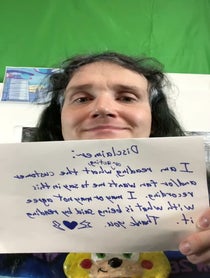 Disclaimer:
or acting
I am reading what the customer
and/or Fan wants me to say in this
recording. I may may not agree
with what is being said by reading
it. Thank you